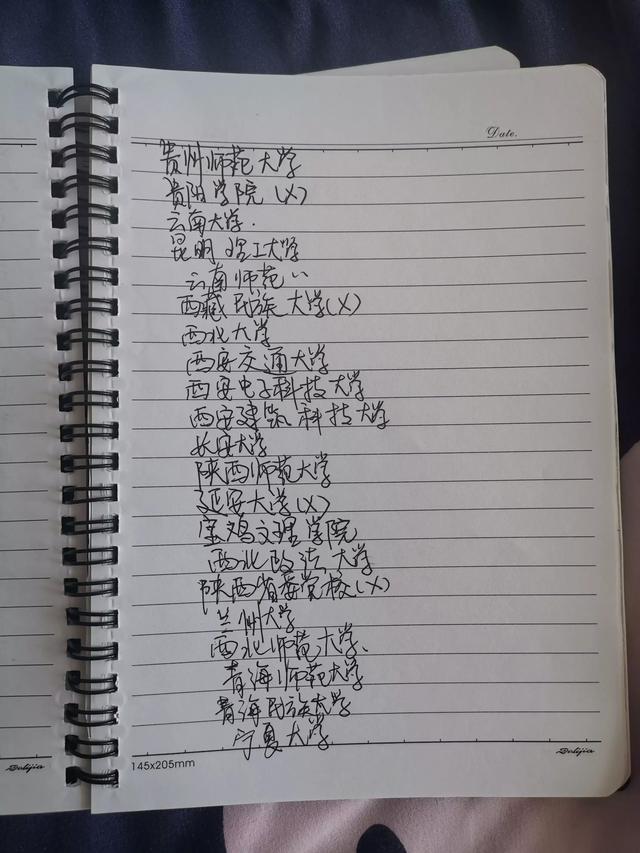 Date.
贵州师范大学
贵阳学院(X)
云南大学.
昆明理工大学
云南师范〃
西藏民族大学(X)
西北大学
西安交通大学
西安电子科技大学
西安建筑科技大学
长安大学
陕西师范大学
延安大学(X)
宝鸡文理学院
西北政法大学
陕西省委党校(X)
兰州大学
西北师范大学、
青海师范大学
青海民族大学
宁夏大学
145x205mm